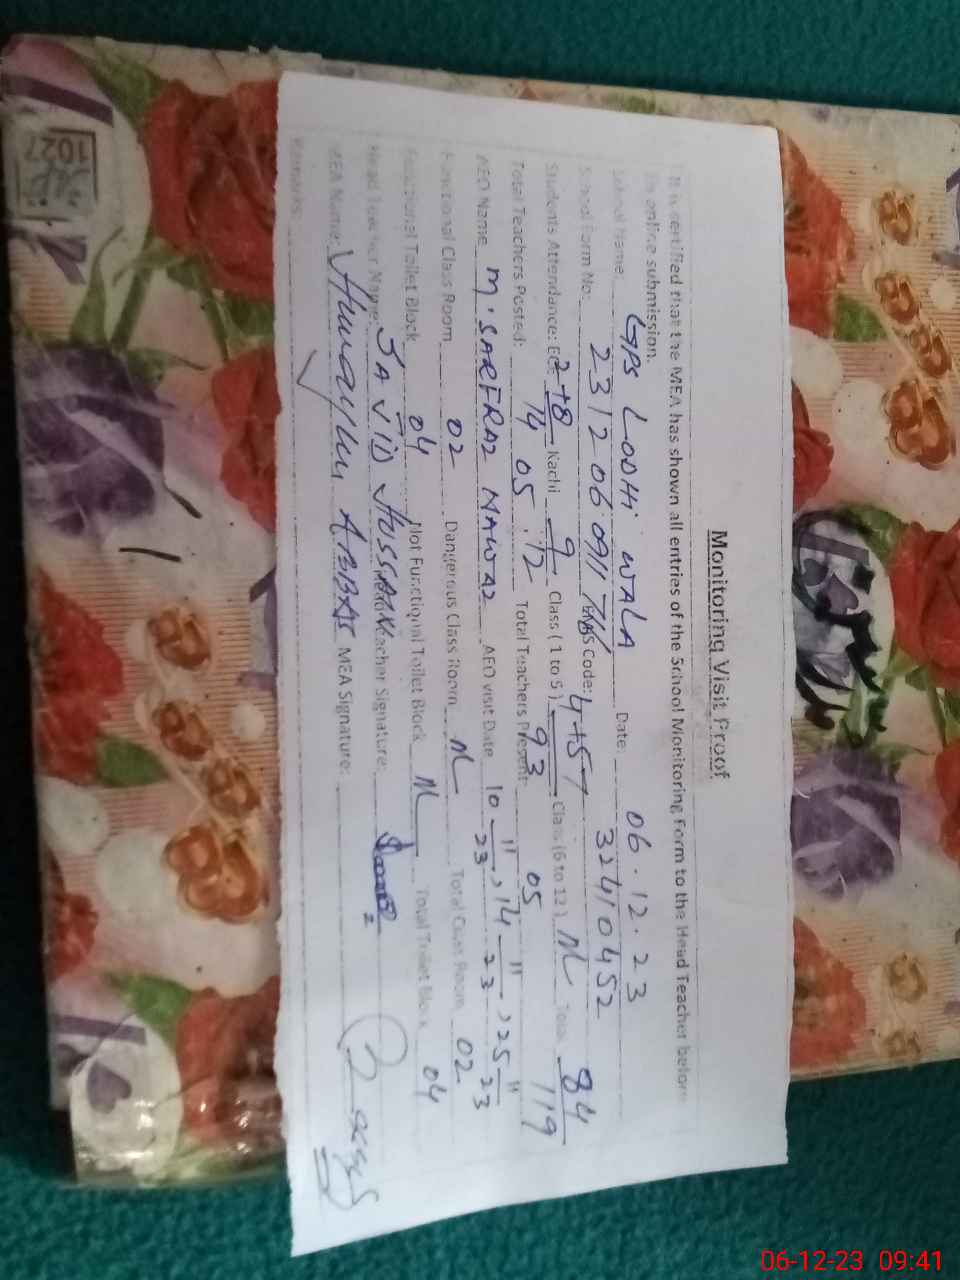 Monitoring Visit Proof
It is certified that the MEA has shown all entries of the School Monitoring Form to the Head Teacher before
online submission.
School Name: GPS LODHI WALA Date: 06.12.23
School Form No: 23120609117 Code: 32410452
Students Attendance: ECE 2+8/14 Kachi 9/12 Class (1 to 5) 4+57/93 Class (6 to 12) NL Total 84/119
Total Teachers Posted: 05 Total Teachers Present: 05
AEO Name M. SARFRAZ NAWAZ AEO visit Date 10-11-23, 14-11-23, 25-11-23
Functional Class Room 02 Dangerous Class Room NL Total Class Room 02
Functional Toilet Block 04 Not Functional Toilet Block NL Total Toilet Block 04
Head Teacher Name: JAVID HUSSAIN Head Teacher Signature:
MEA Name: Humayun ABBAS MEA Signature:
Remarks:
1027
06-12-23 09:41